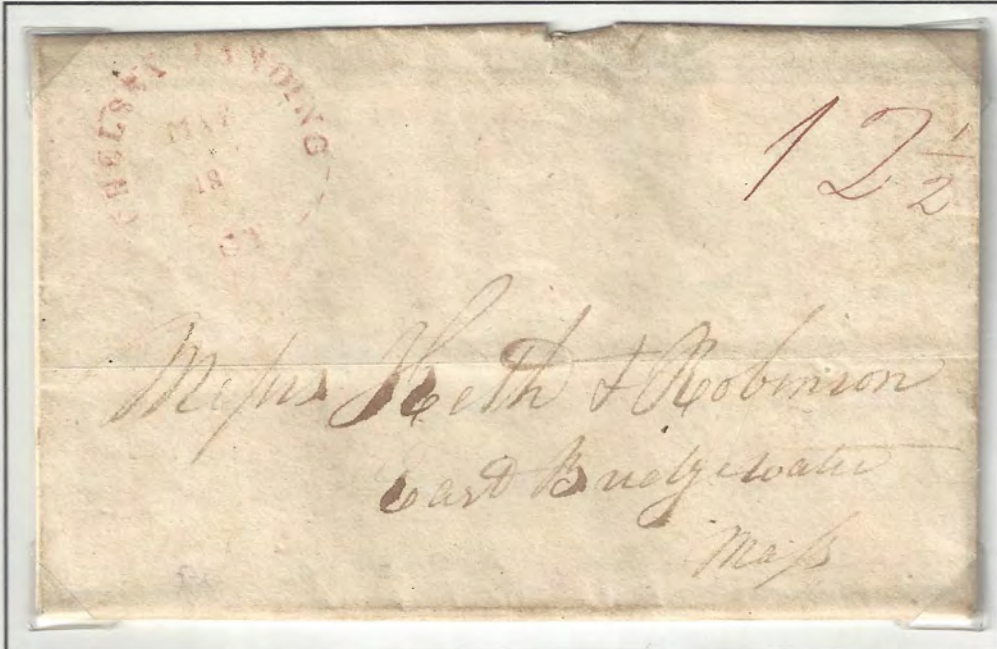 CHELSEA LANDING
MAY
18
12 1/2
Messrs Keith & Robinson
East Bridgewater
Mass